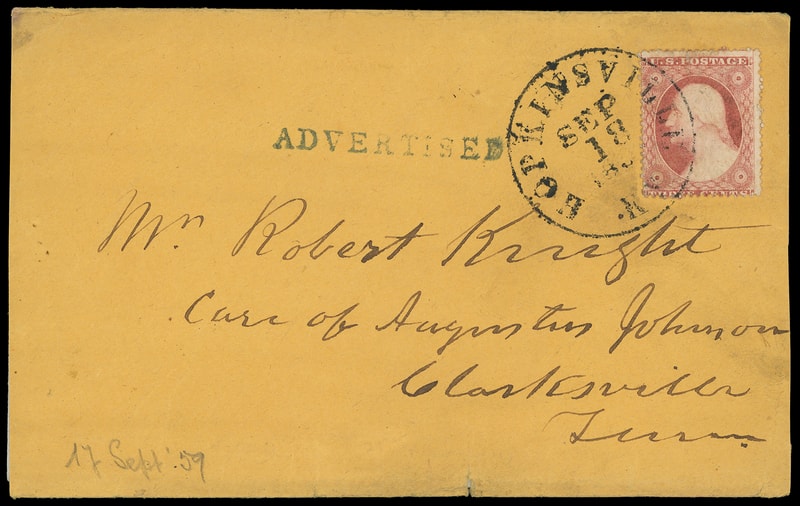 U.S. POSTAGE
THREE CENTS
HOPKINSVILLE KY.
SEP
18
ADVERTISED
Mr Robert Knight
Care of Augustus Johnson
Clarksville
Tenn
17 Sept '59